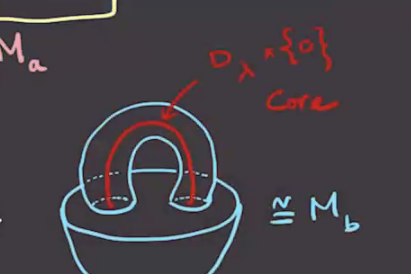 M_a
D_λ × {0}
Core
≅ M_b